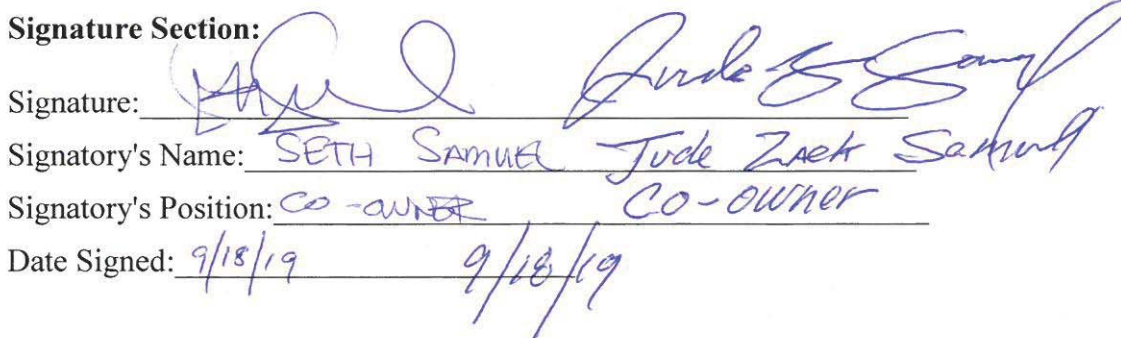 Signature Section:
Signature: Jude Z Samuel
Signatory's Name: SETH SAMUEL Jude Zack Samuel
Signatory's Position: CO-OWNER CO-OWNer
Date Signed: 9/18/19 9/18/19